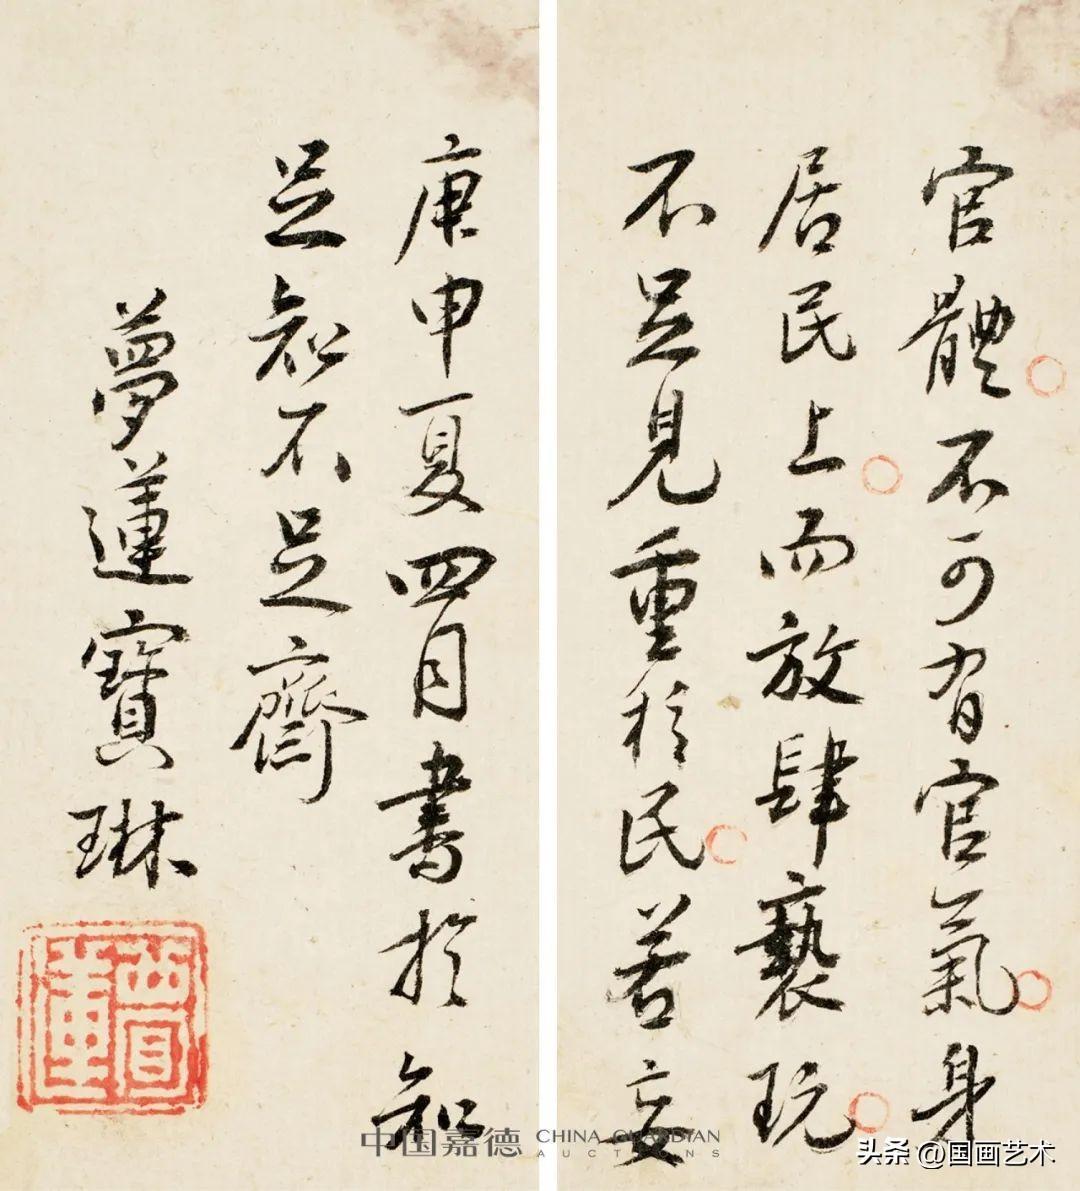 官體不可有官氣身
居民上而放肆褻玩
不足見重於民若妄
庚申夏四月書於知
足知不足齋
夢蓮寶琳
中国嘉德 CHINA GUARDIAN
AUCTIONS
头条 @国画艺术